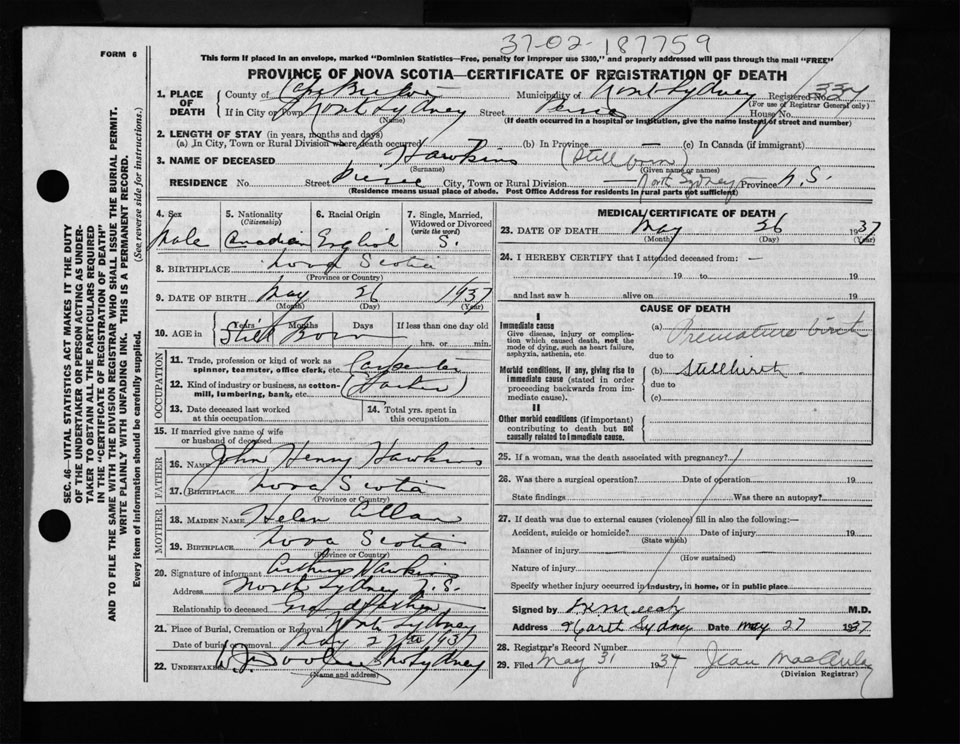 37-02-187759
FORM 6
This form if placed in an envelope, marked "Dominion Statistics—Free, penalty for improper use $300," and properly addressed will pass through the mail "FREE"
PROVINCE OF NOVA SCOTIA—CERTIFICATE OF REGISTRATION OF DEATH
1. PLACE OF DEATH County of Cape Breton Municipality of North Sydney Registered No.
(For use of Registrar General only)
If in City or Town North Sydney Street Pierce House No.
(Name) (If death occurred in a hospital or institution, give the name instead of street and number)
2. LENGTH OF STAY (in years, months and days)
(a) In City, Town or Rural Division where death occurred (b) In Province — (c) In Canada (if immigrant)
3. NAME OF DECEASED Hawkins (Stillborn)
(Surname) (Given name or names)
RESIDENCE No. Street Pierce City, Town or Rural Division North Sydney Province N.S.
(Residence means usual place of abode. Post Office Address for residents in rural parts not sufficient)
4. Sex Male
5. Nationality (Citizenship) Canadian
6. Racial Origin English
7. Single, Married, Widowed or Divorced (write the word) S.
8. BIRTHPLACE Nova Scotia
(Province or Country)
9. DATE OF BIRTH May 26 1937
(Month) (Day) (Year)
10. AGE in Years Months Days If less than one day old
Still Born hrs. or min.
OCCUPATION
11. Trade, profession or kind of work as spinner, teamster, office clerk, etc. Carpenter
12. Kind of industry or business, as cotton-mill, lumbering, bank, etc. (Father)
13. Date deceased last worked at this occupation
14. Total yrs. spent in this occupation
15. If married give name of wife or husband of deceased
FATHER
16. NAME John Henry Hawkins
17. BIRTHPLACE Nova Scotia
(Province or Country)
MOTHER
18. MAIDEN NAME Helen Allan
19. BIRTHPLACE Nova Scotia
(Province or Country)
20. Signature of informant Arthur Hawkins
Address North Sydney N.S.
Relationship to deceased Grandfather
21. Place of Burial, Cremation or Removal North Sydney
Date of burial or removal May 27th 1937
22. UNDERTAKER No Sydney
(Name and address)
MEDICAL CERTIFICATE OF DEATH
23. DATE OF DEATH May 26 1937
(Month) (Day) (Year)
24. I HEREBY CERTIFY that I attended deceased from: —
19 to 19
and last saw h alive on 19
CAUSE OF DEATH
I
Immediate cause
Give disease, injury or complication which caused death, not the mode of dying, such as heart failure, asphyxia, asthenia, etc.
(a) Premature birth
due to
Morbid conditions, if any, giving rise to immediate cause (stated in order proceeding backwards from immediate cause).
(b) Stillbirth.
due to
(c)
II
Other morbid conditions (if important) contributing to death but not causally related to immediate cause.
25. If a woman, was the death associated with pregnancy?
26. Was there a surgical operation? Date of operation 19
State findings Was there an autopsy?
27. If death was due to external causes (violence) fill in also the following:—
Accident, suicide or homicide? Date of injury 19
(State which)
Manner of injury
(How sustained)
Nature of injury
Specify whether injury occurred in industry, in home, or in public place
Signed by M.D.
Address North Sydney Date May 27 1937
28. Registrar's Record Number
29. Filed May 31 1937 Jean MacAulay
(Division Registrar)
SEC. 46—VITAL STATISTICS ACT MAKES IT THE DUTY
OF THE UNDERTAKER OR PERSON ACTING AS UNDER-
TAKER TO OBTAIN ALL THE PARTICULARS REQUIRED
IN THE "CERTIFICATE OF REGISTRATION OF DEATH"
AND TO FILE THE SAME WITH THE DIVISION REGISTRAR WHO SHALL ISSUE THE BURIAL PERMIT.
WRITE PLAINLY WITH UNFADING INK. THIS IS A PERMANENT RECORD.
Every item of information should be carefully supplied. (See reverse side for instructions.)